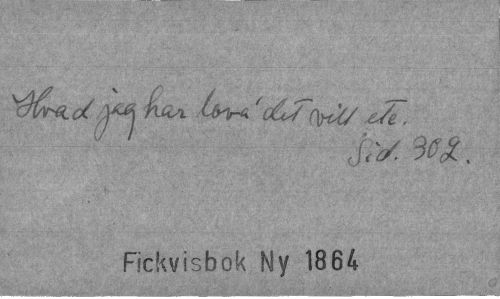 Hvad jag har lova' det vill etc.
Sid. 302.
Fickvisbok Ny 1864